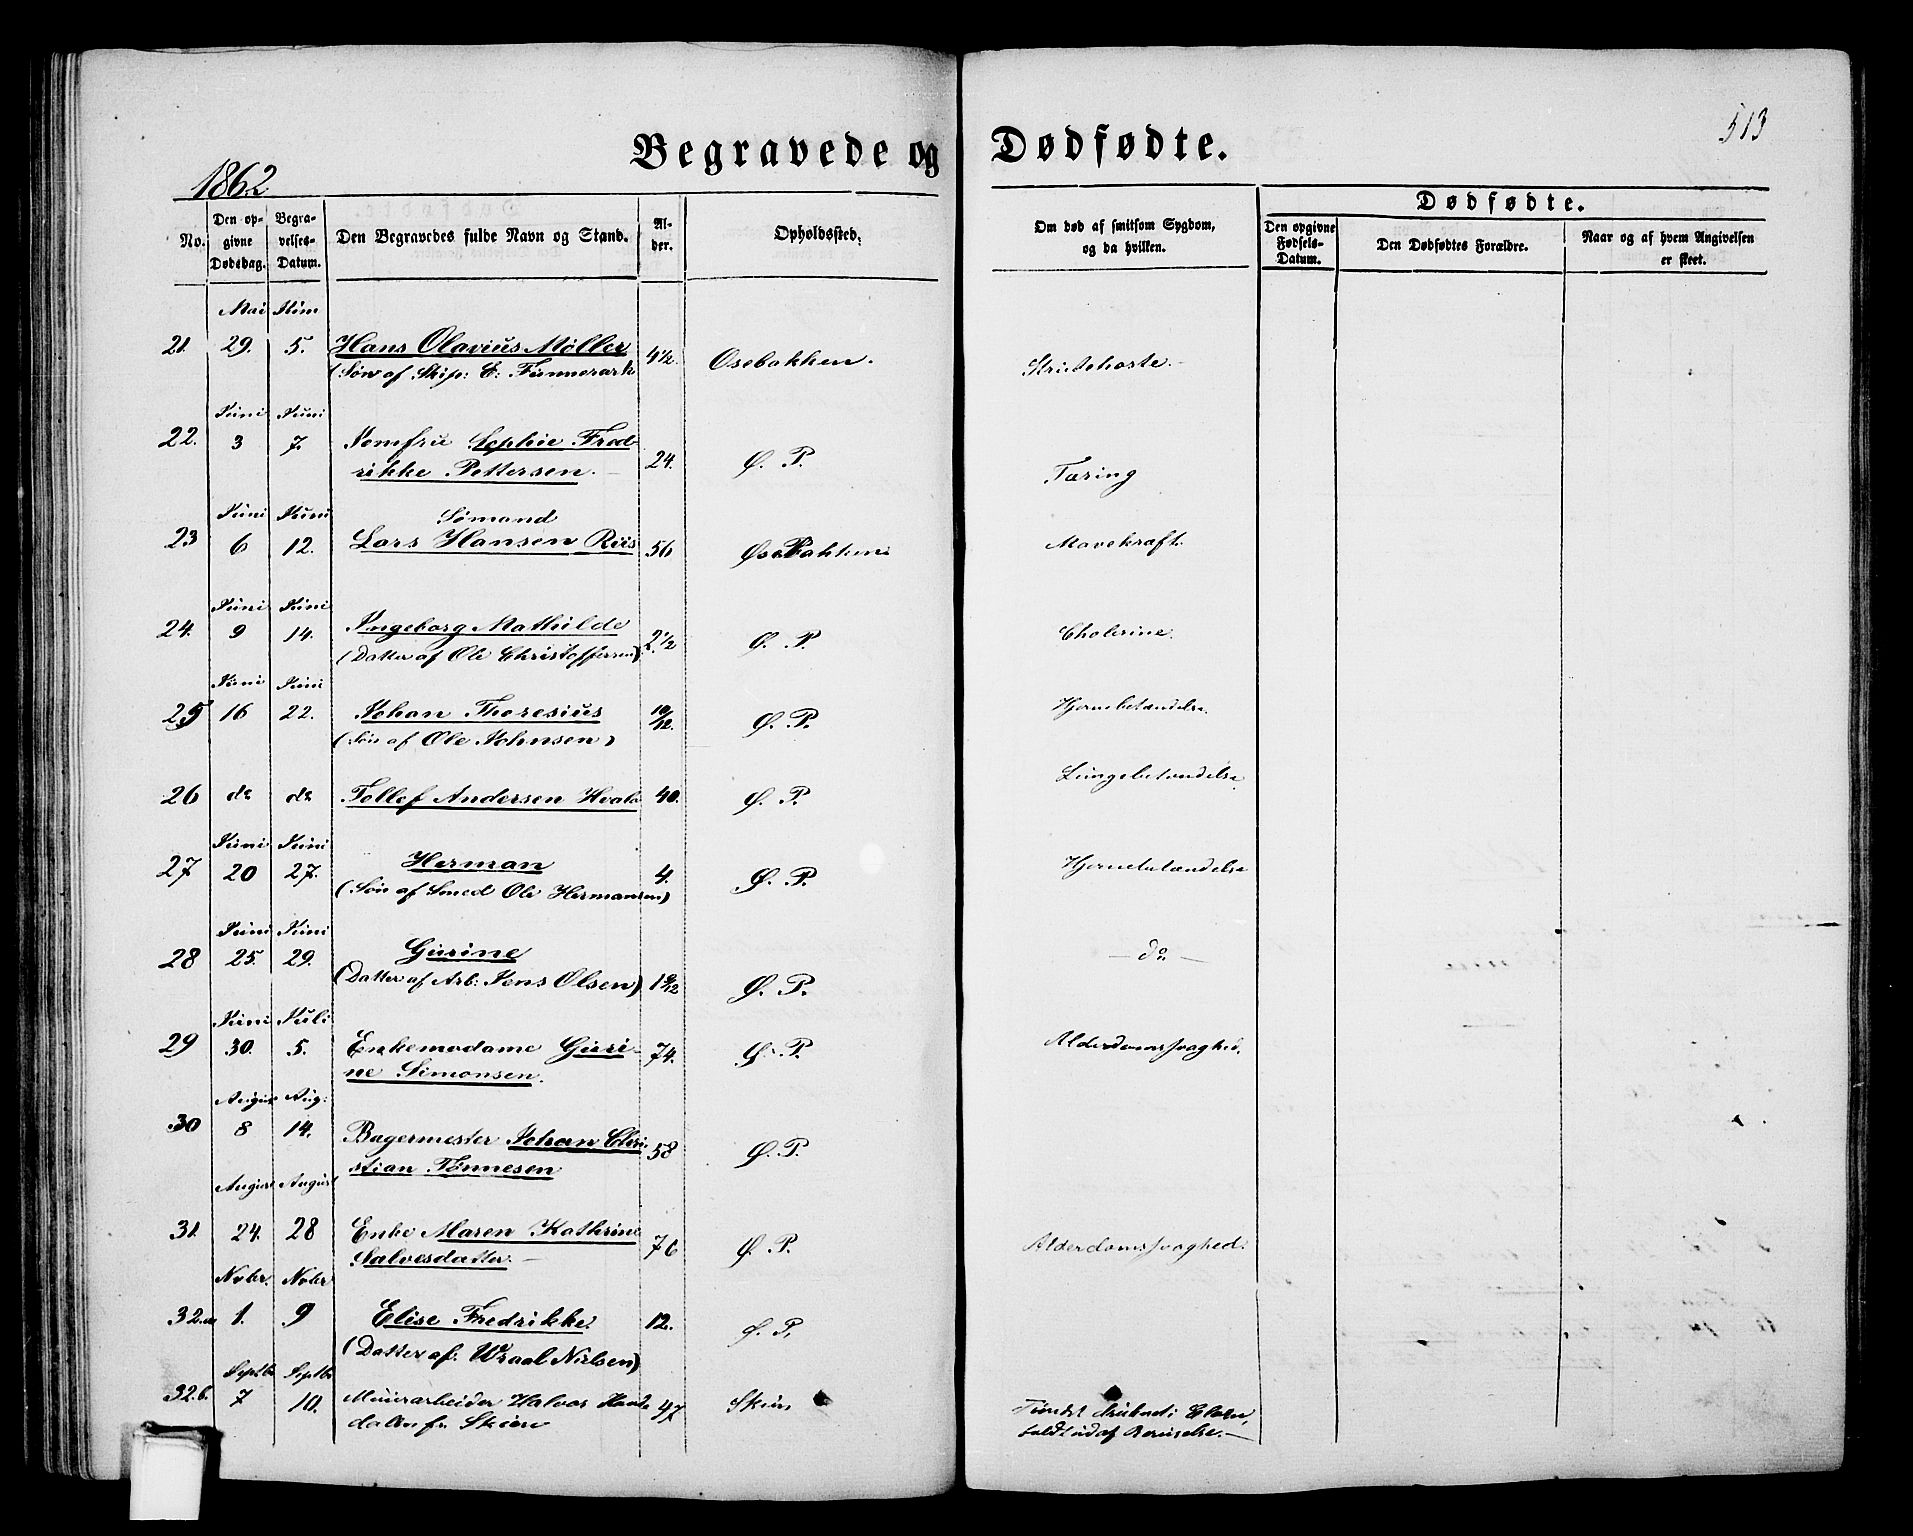 513
Begravede og Dødfødte.
1862
No. Den opgivne Dødsdag. Begravelses-Datum. Den Begravedes fulde Navn og Stand. Alder. Opholdssted. Om død af smitsom Sygdom, og da hvilken. Dødfødte. Den opgivne Fødsels-Datum. Den Dødfødtes Forældre. Naar og af hvem Angivelsen er skeet.
Mai Juni
21. 29. 5. Hans Olavius Møller 4 1/2. Osebakken. Strubehoste.
(Søn af Skip: E:
Juni Juni
22. 3 7. Jomfru Sophie Fred-
rikke Pettersen. 24. Ø. P. Tæring
Juni Juni
Sømand
23 6 12. Lars Hansen Riis 56 Osebakken Mavekræft.
Juni Juni
24. 9 14. Ingeborg Mathilde 2 1/2 Ø. P. Cholerine.
(Datter af Ole Christoffersen)
Juni Juni
25 16 22. Johan Thoresius 10/12. Ø. P. Hjernebetændelse.
(Søn af Ole Johnsen)
26 do do Tollef Andersen 40. Ø. P. Lungebetændelse
Juni Juni
27 20 27. Herman 4. Ø. P. Hjernebetændelse
(Søn af Smed Ole Hermansen)
Juni Juni
28 25. 29. Gurine - do -
(Datter af Arb: Jens Olsen) 1 9/12 Ø. P.
Juni Juli
29 30. 5. Enkemadame Guri-
ne Simonsen. 74. Ø. P. Alderdomssvaghed.
August Aug:
30 8 14. Bagermester Johan Chri-
stian Tønnesen 58 Ø. P.
August August
31. 24. 28 Enke Maren Kathrine
Salvesdatter. 76 Ø. P. Alderdomssvaghed.
Novbr. Novbr
32.a 1. 9 Elise Fredrikke. 12. Ø. P.
(Datter af: Wraal Nielsen)
Septbr Septbr
32.b. 7 10. Muurarbeider Halvor
dalen fr. Skien 47 Skien Fundet druknet i Elven,
faldt ud af Beruselse.